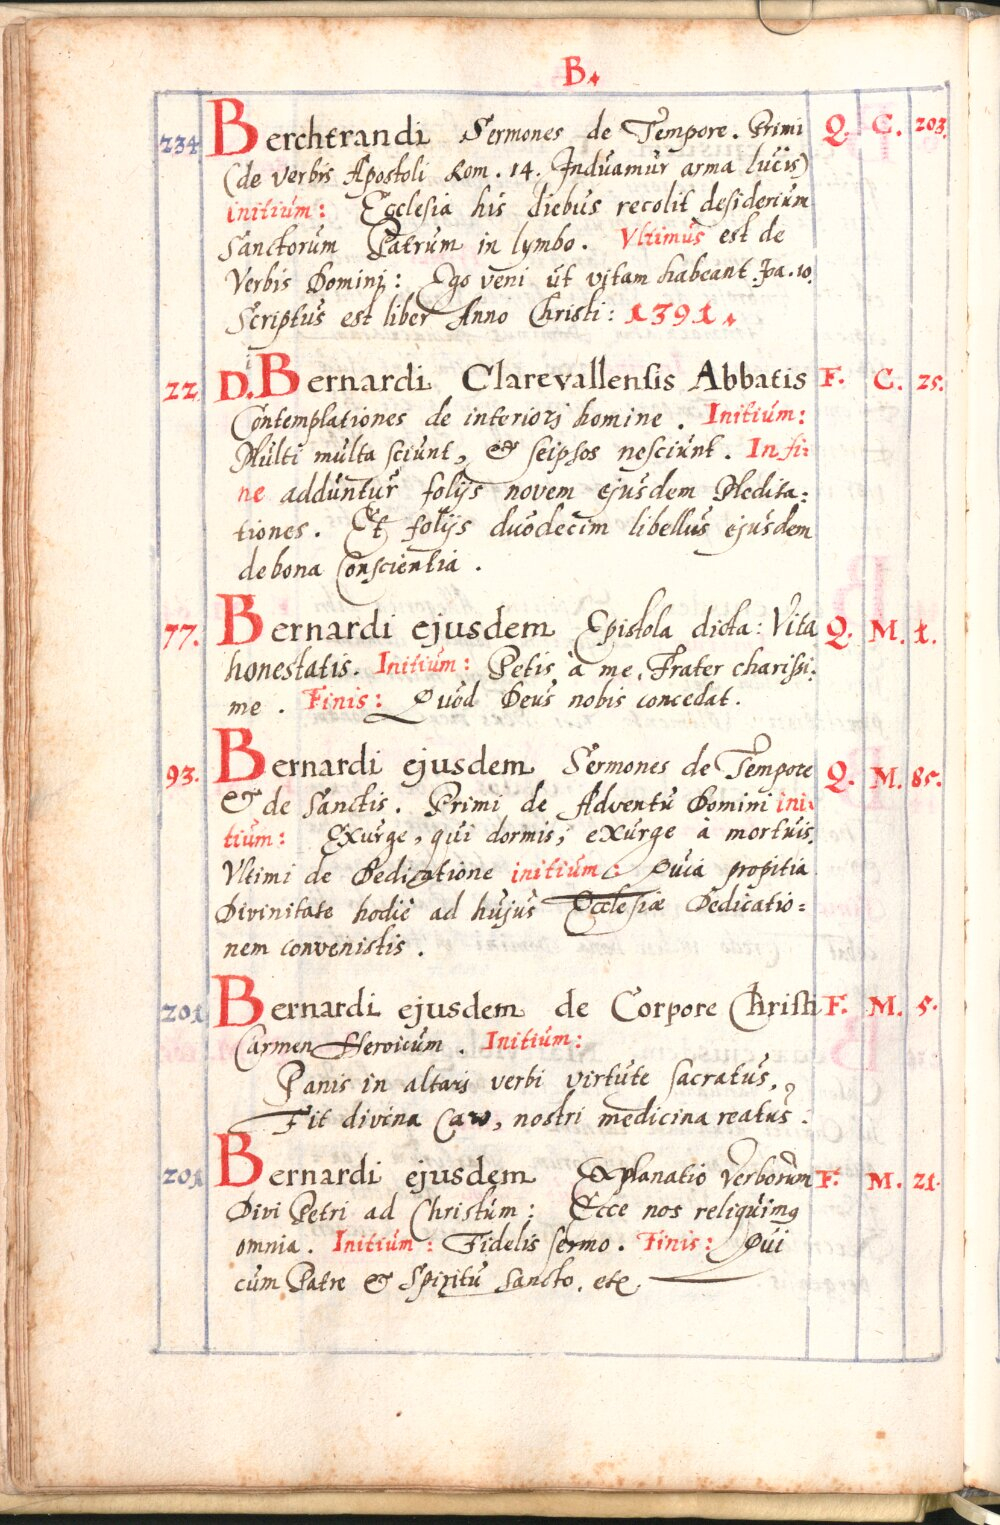 B.
234 Berchtrandi Sermones de Tempore. Primi Q. C. 203.
(de verbis Apostoli Rom. 14. Induamur arma lucis)
initium: Ecclesia his diebus recolit desiderium
Sanctorum Patrum in lymbo. Vltimus est de
Verbis Domini: Ego veni ut vitam habeant. Joa. 10.
Scriptus est liber Anno Christi: 1391.
22. D. Bernardi Clarevallensis Abbatis F. C. 25.
Contemplationes de interiori homine. Initium:
Multi multa sciunt, & seipsos nesciunt. In fi:
ne adduntur folijs novem ejusdem Medita:
tiones. Et folijs duodecim libellus ejusdem
de bona Conscientia.
77. Bernardi ejusdem Epistola dicta: Vita Q. M. 1.
honestatis. Initium: Petis à me, Frater charissi:
me. Finis: Quod Deus nobis concedat.
93. Bernardi ejusdem Sermones de Tempore Q. M. 85.
& de Sanctis. Primi de Adventu Domini ini:
tium: Exurge, qui dormis; exurge à mortuis.
Vltimi de Dedicatione initium: Quia propitia
Divinitate hodie ad hujus Ecclesiæ Dedicatio:
nem convenistis.
201 Bernardi ejusdem de Corpore Christi F. M. 5.
Carmen Heroicum. Initium:
Panis in altari verbi virtute sacratus,
Fit divina Caro, nostri medicina reatus:
201 Bernardi ejusdem Explanatio Verborum F. M. 21.
Divi Petri ad Christum: Ecce nos reliquimq
omnia. Initium: Fidelis sermo. Finis: Qui
cum Patre & Spiritu Sancto. etc